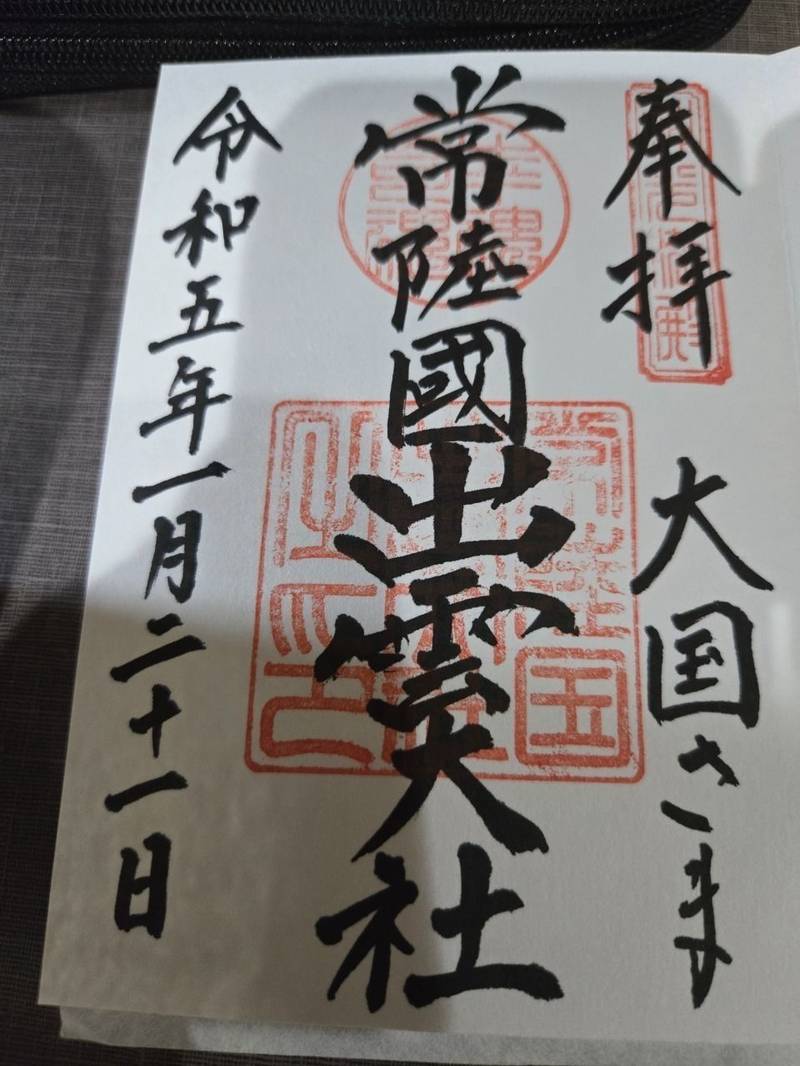 奉拝
大国さま
常陸國出雲大社
令和五年一月二十一日